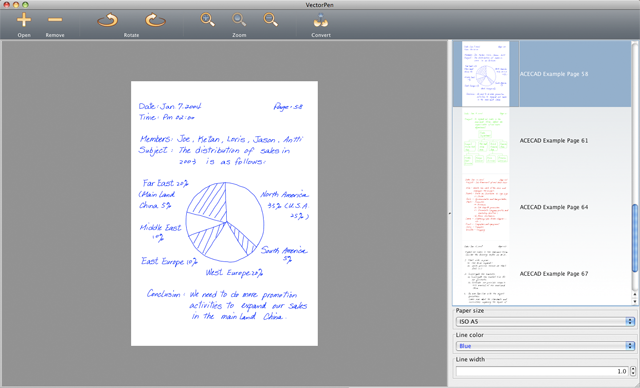 VectorPen
Open Remove Rotate Zoom Convert
Date: Jan. 7. 2004 Page-58
Time: Pm 02:00
Members: Joe, Kietan, Loris, Jason, Antti
Subject: The distribution of sales in
2003 is as follows:
Far East 20%
(Main Land
China 5%
Middle East
10%
East Europe 10%
West Europe 20%
South America
5%
North America
35% (U.S.A.
25%)
Conclusion: We need to do more promotion
activities to expand our sales
in the main land China.
ACECAD Example Page 58
ACECAD Example Page 61
ACECAD Example Page 64
ACECAD Example Page 67
Paper size
ISO A5
Line color
Blue
Line width
1.0